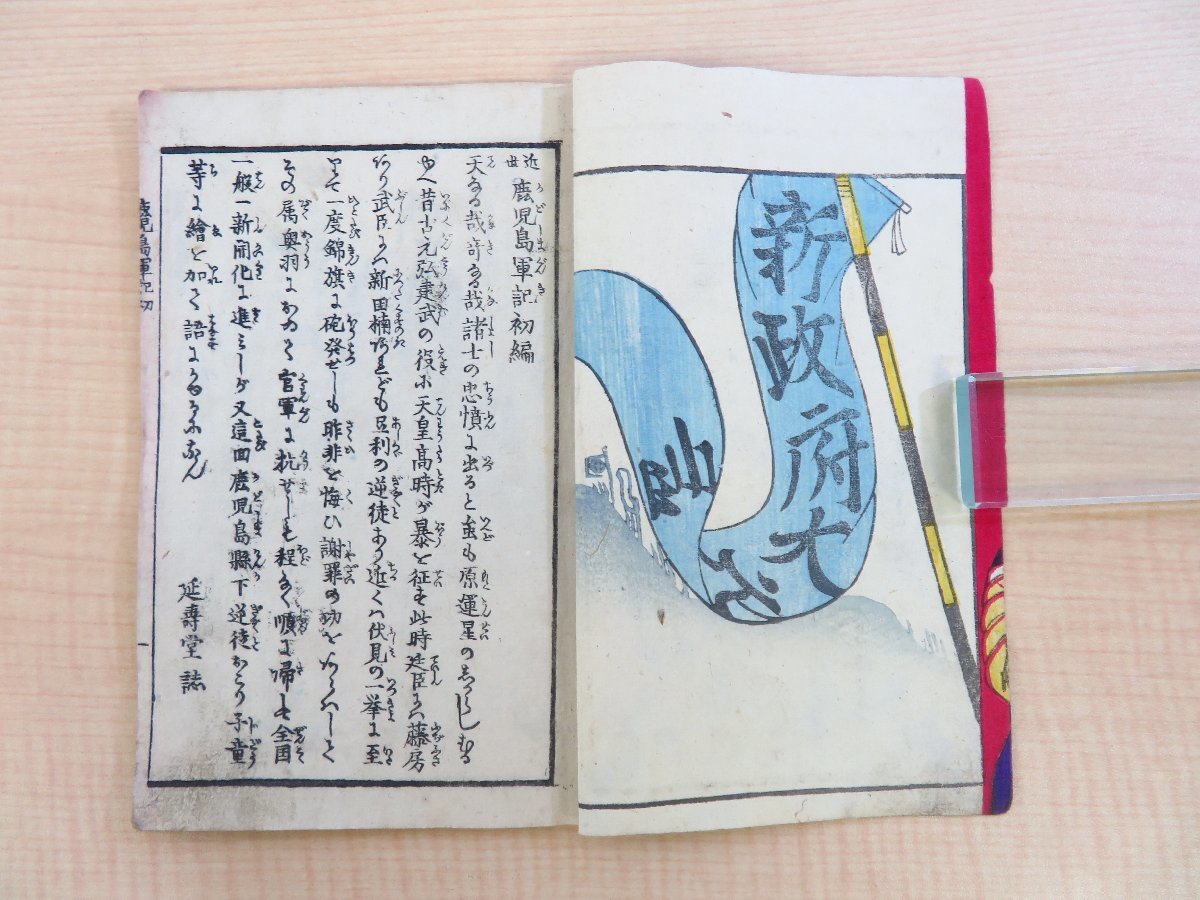 新政府大
近世 鹿児島軍記初編
天なる哉奇なる哉諸士の忠憤に出ると雖も原運星の
昔古元弘建武の役に天皇高時が暴を征す此時廷臣には藤房
あり武臣には新田楠あれども足利の逆徒あり近くは伏見の一挙に至
りて一度錦旗に砲発せしも昨非を悔ひ謝罪の功を
その属奥羽において官軍に抗せしも程なく順に帰しせ全国
一般一新開化に進みしが又這回鹿児島縣下逆徒おこり子童
等に繪を加えて語る
延壽堂誌
鹿児島軍記初
一